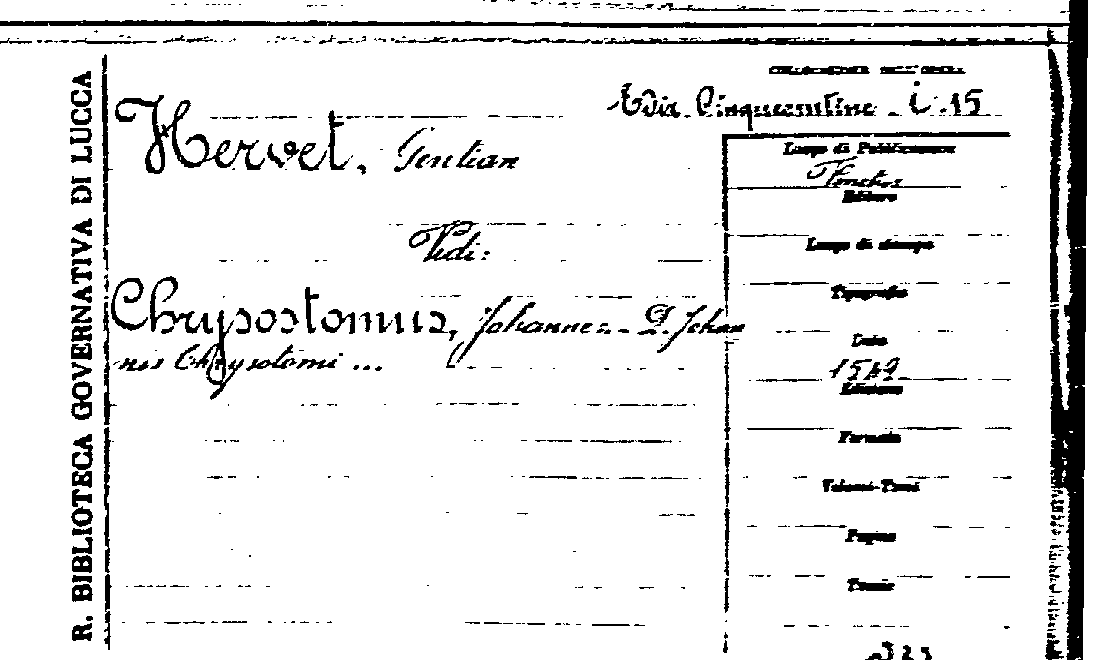 R. BIBLIOTECA GOVERNATIVA DI LUCCA
COLLOCAZIONE DELL'OPERA
Ediz. Cinquecentine - i. 15
Hervet, Gentian
Vedi:
Chrysostomus, Johannes. - D. Johan
nis Chrysotomi ...
Luogo di Pubblicazione
Editore
Luogo di stampa
Tipografia
Data
1549
Edizione
Formato
Volumi-Tomi
Pagine
Tavole